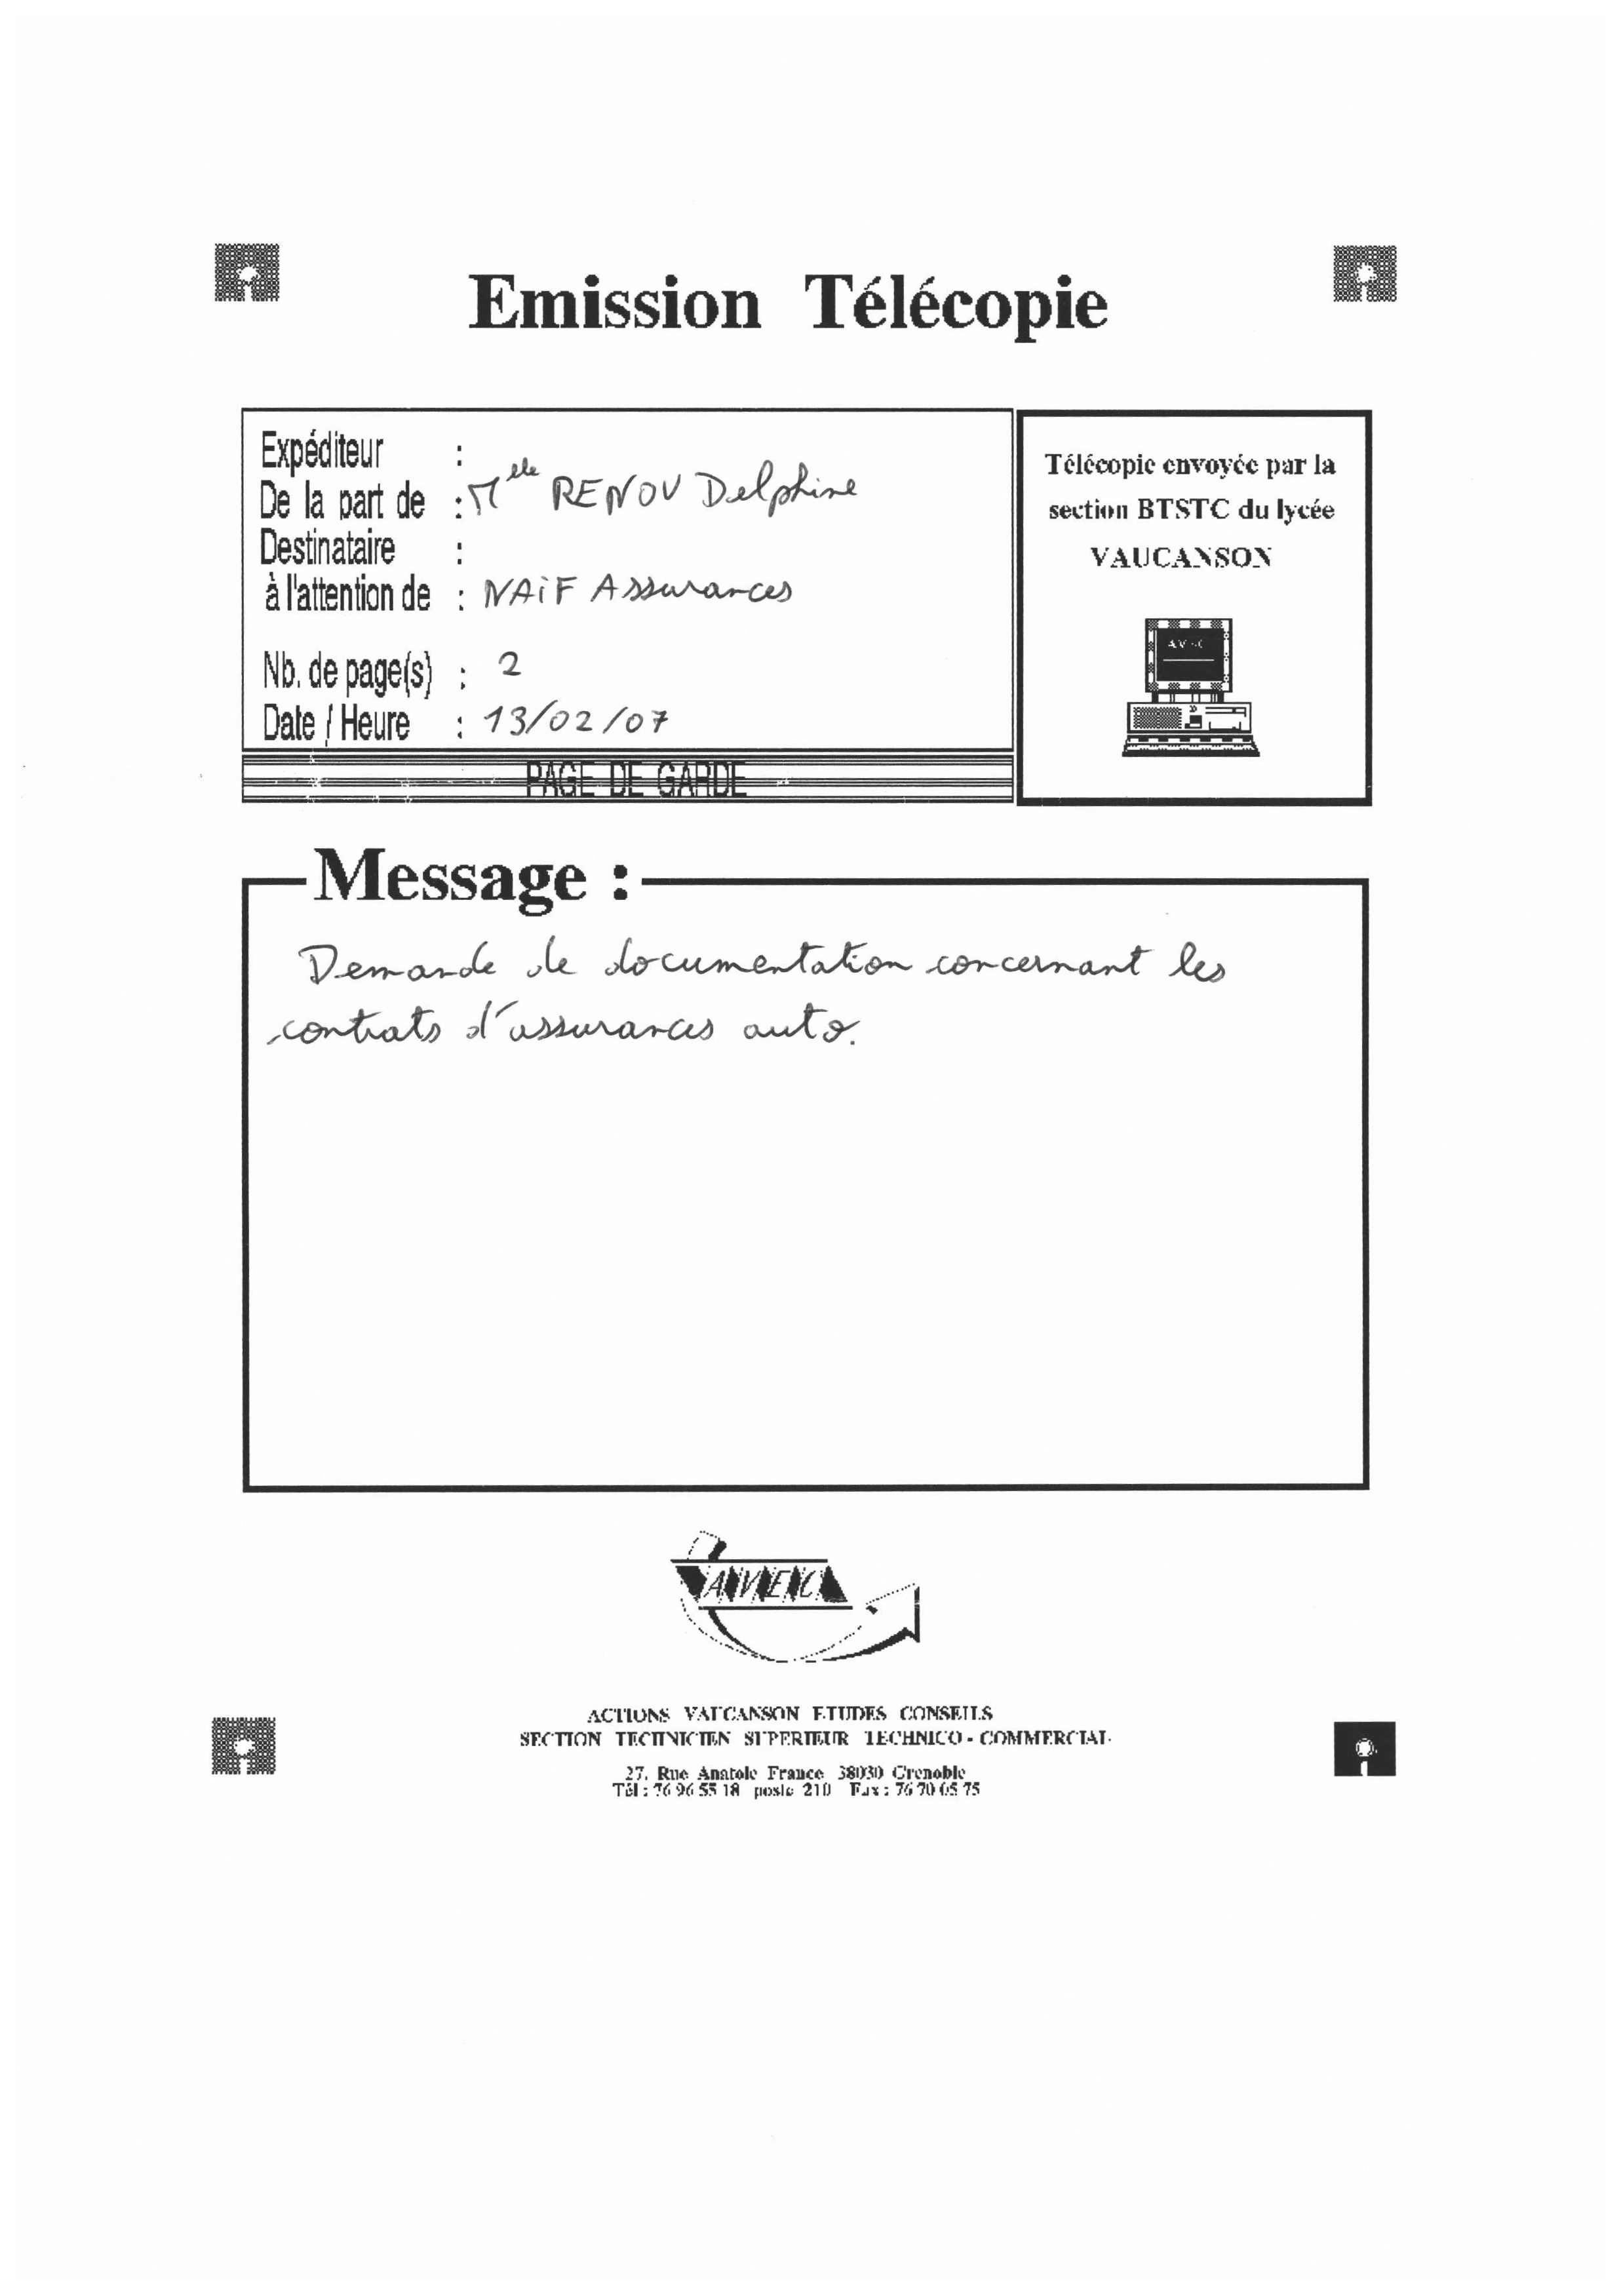 Emission Télécopie
Expéditeur :
De la part de : Mlle RENOV Delphine
Destinataire :
à l'attention de : NAiF Assurances
Nb. de page(s) : 2
Date / Heure : 13/02/07
PAGE DE GARDE
Télécopie envoyée par la
section BTSTC du lycée
VAUCANSON
Message :
Demande de documentation concernant les
contrats d'assurances auto.
AVEC
ACTIONS VAUCANSON ETUDES CONSEILS
SECTION TECHNICIEN SUPERIEUR TECHNICO - COMMERCIAL
27, Rue Anatole France 38030 Grenoble
Tél : 76 96 55 18 poste 210 Fax : 76 70 05 75